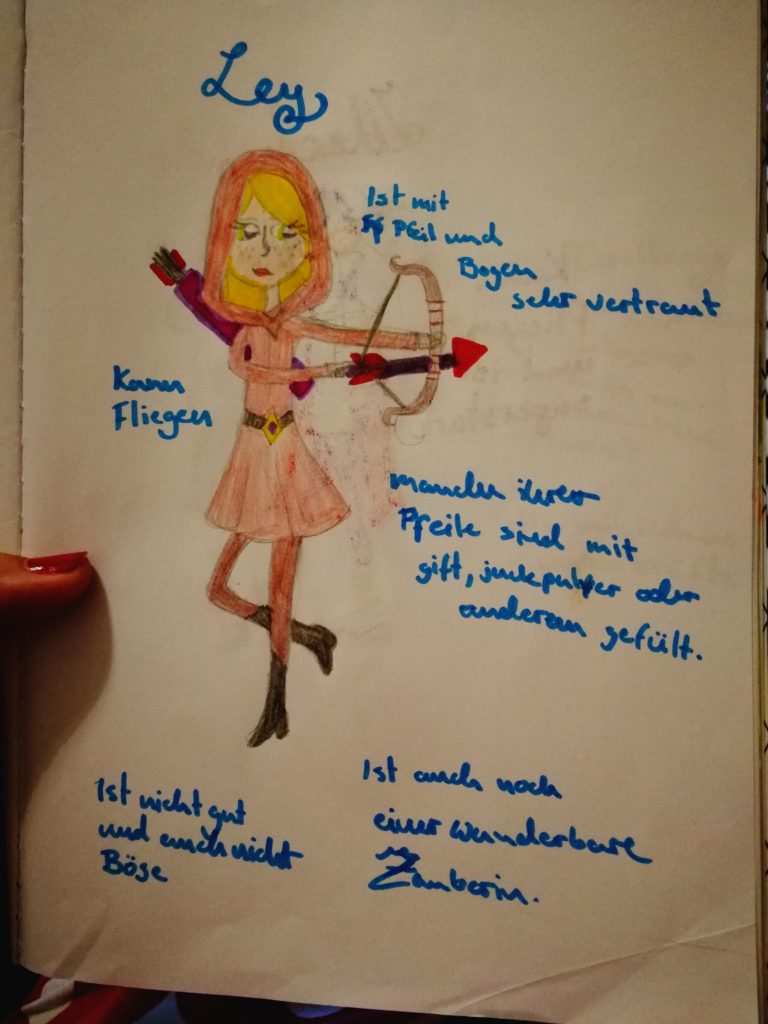 Ley
Ist mit
Pfeil und
Bogen
sehr vertraut
Kann
Fliegen
manche ihrer
Pfeile sind mit
gift, juckpulver oder
anderen gefült.
Ist nicht gut
und auch nicht
Böse
Ist auch noch
einer wunderbare
Zauberin.